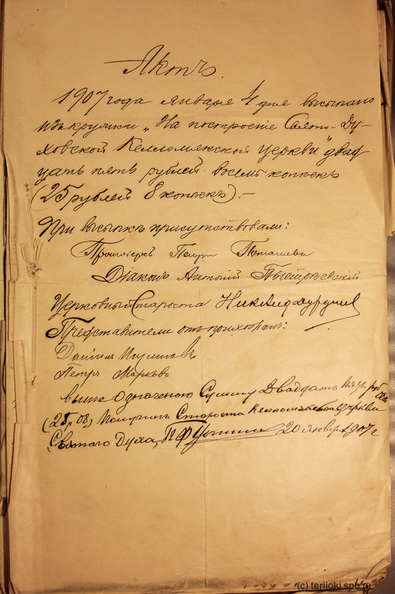 Актъ.
1907 года января 4 дня высыпано
изъ кружки „На построенiе Свято-Ду-
ховской Келломякской церкви" двад-
цать пять рублей восемь копѣекъ
(25 рублей 8 копѣекъ).-
При высыпкѣ присутствовали:
Протоiерей Петръ Поташевъ
Дiаконъ Антонiй
Церковный Староста
Представители отъ прихожанъ:
Данiилъ
Петръ Марковъ
выше означеную Сумму Двадцать пять руб
(25, 08) Получилъ Староста Келломякской церкви
Святого Духа, 20 январ 1907 г
(c) terijoki.spb.ru